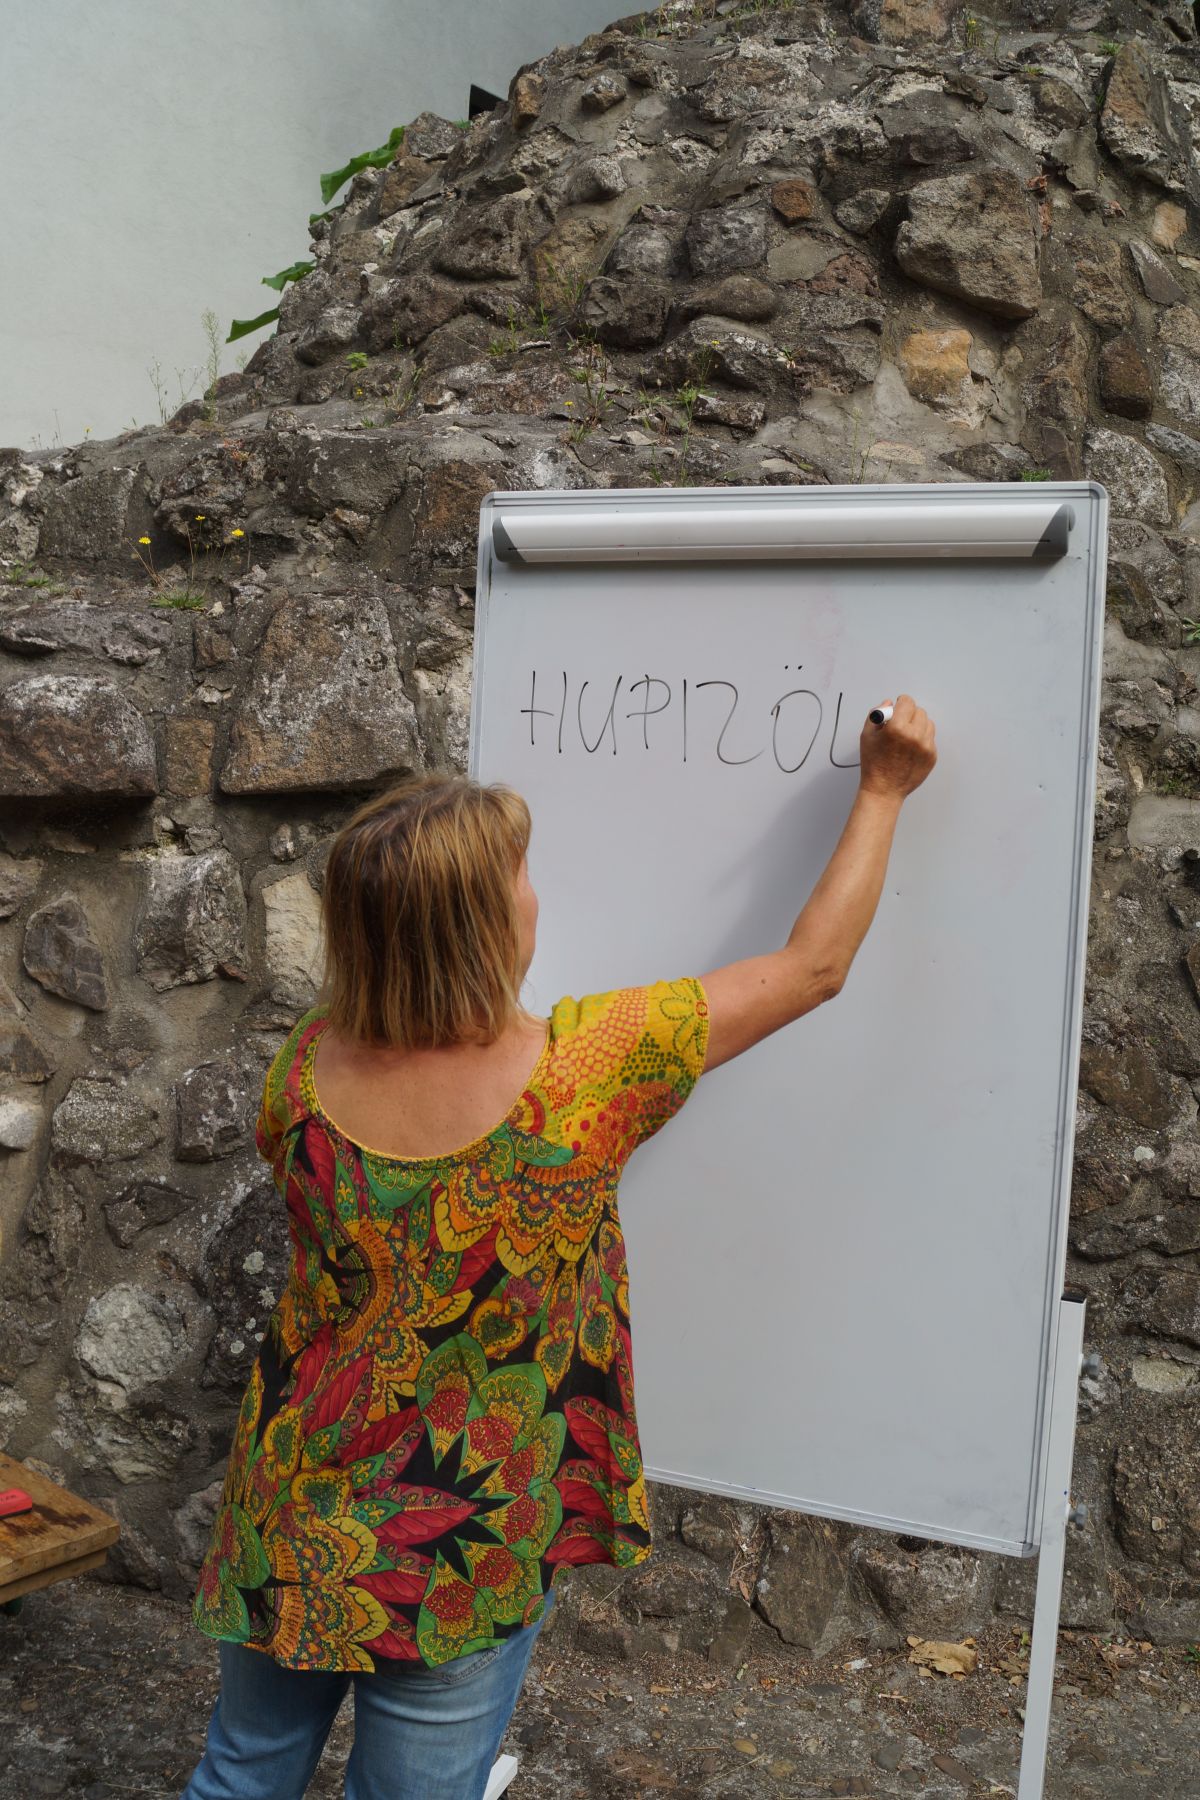 HUPIZÖL